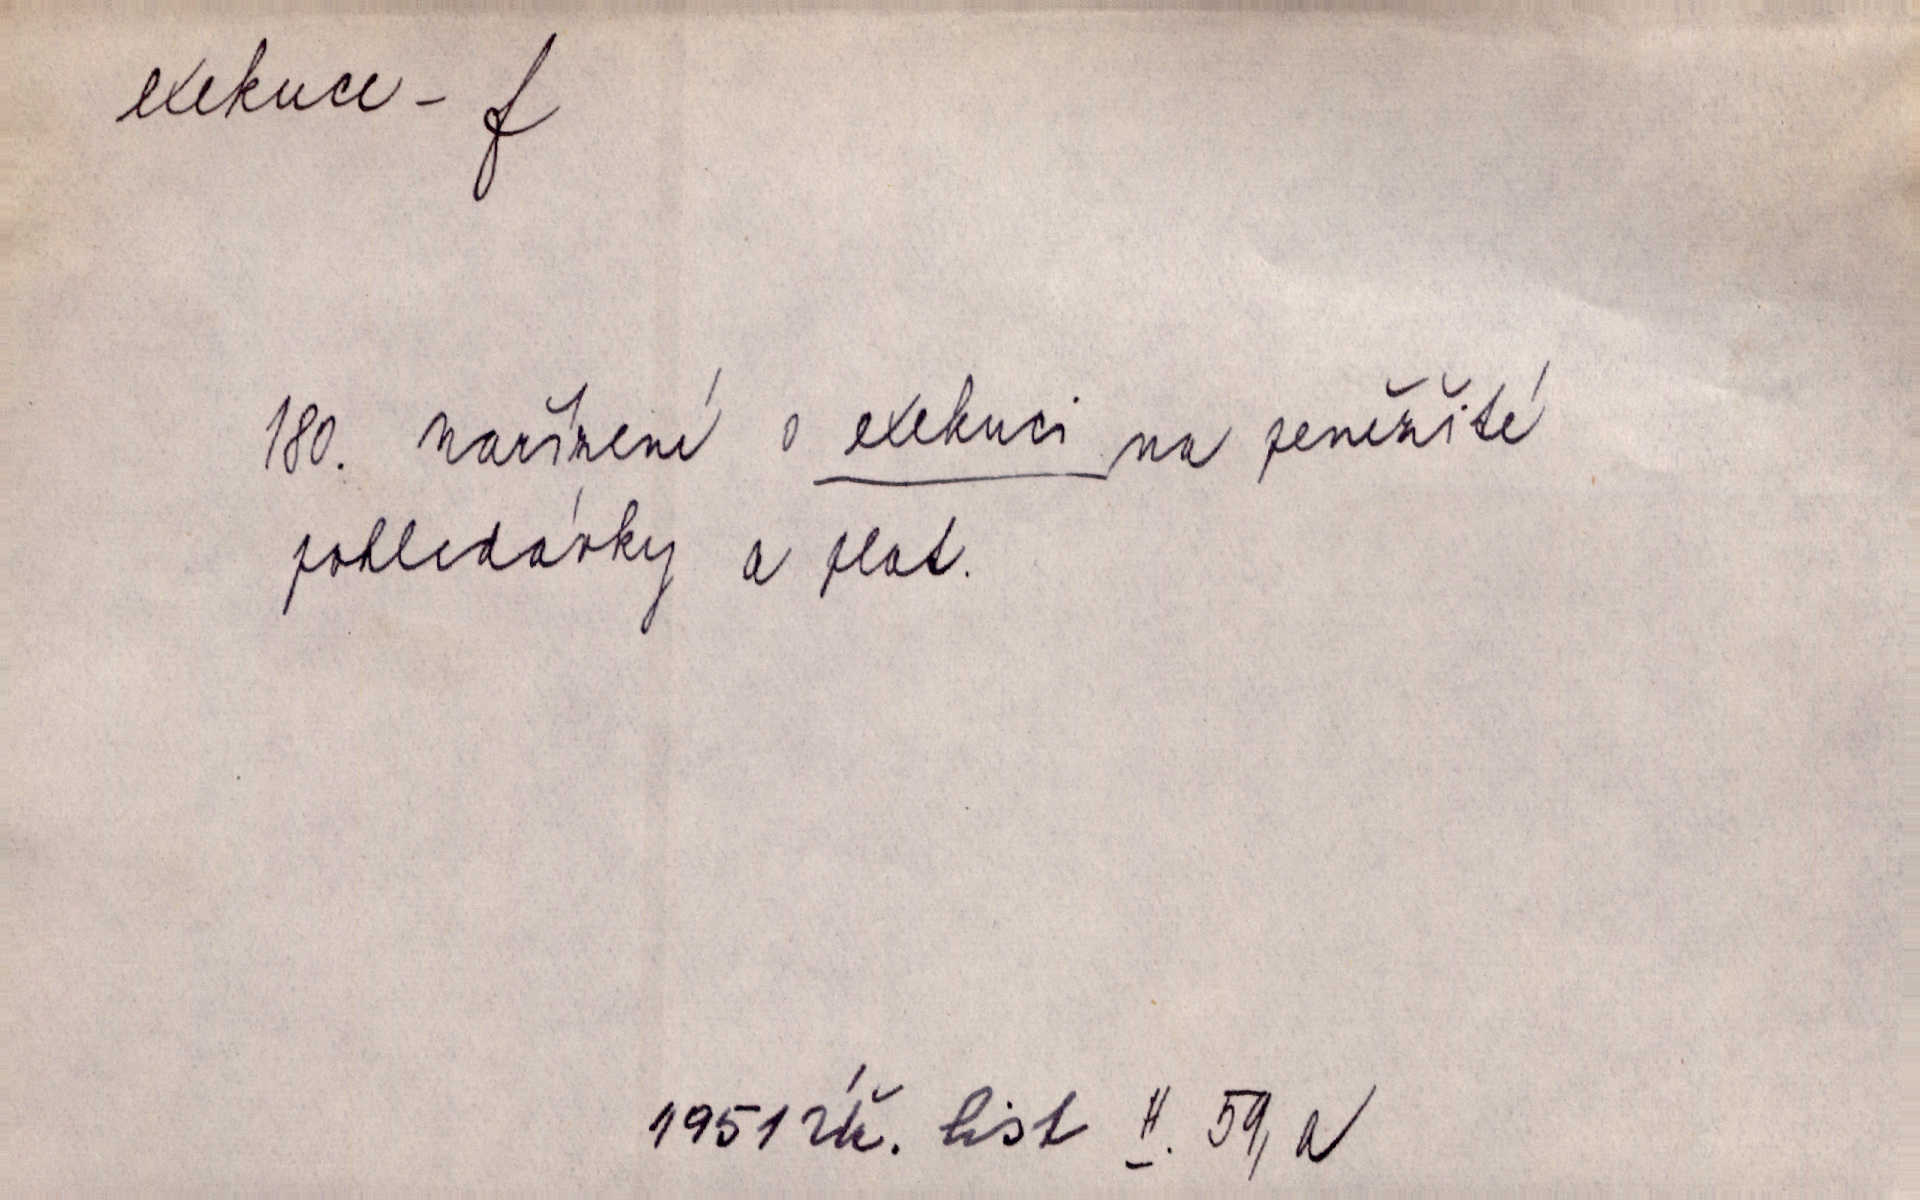 exekuce - f
180. nařízení o exekuci na peněžité
pohledávky a plat.
1951 úř. list II. 59, a